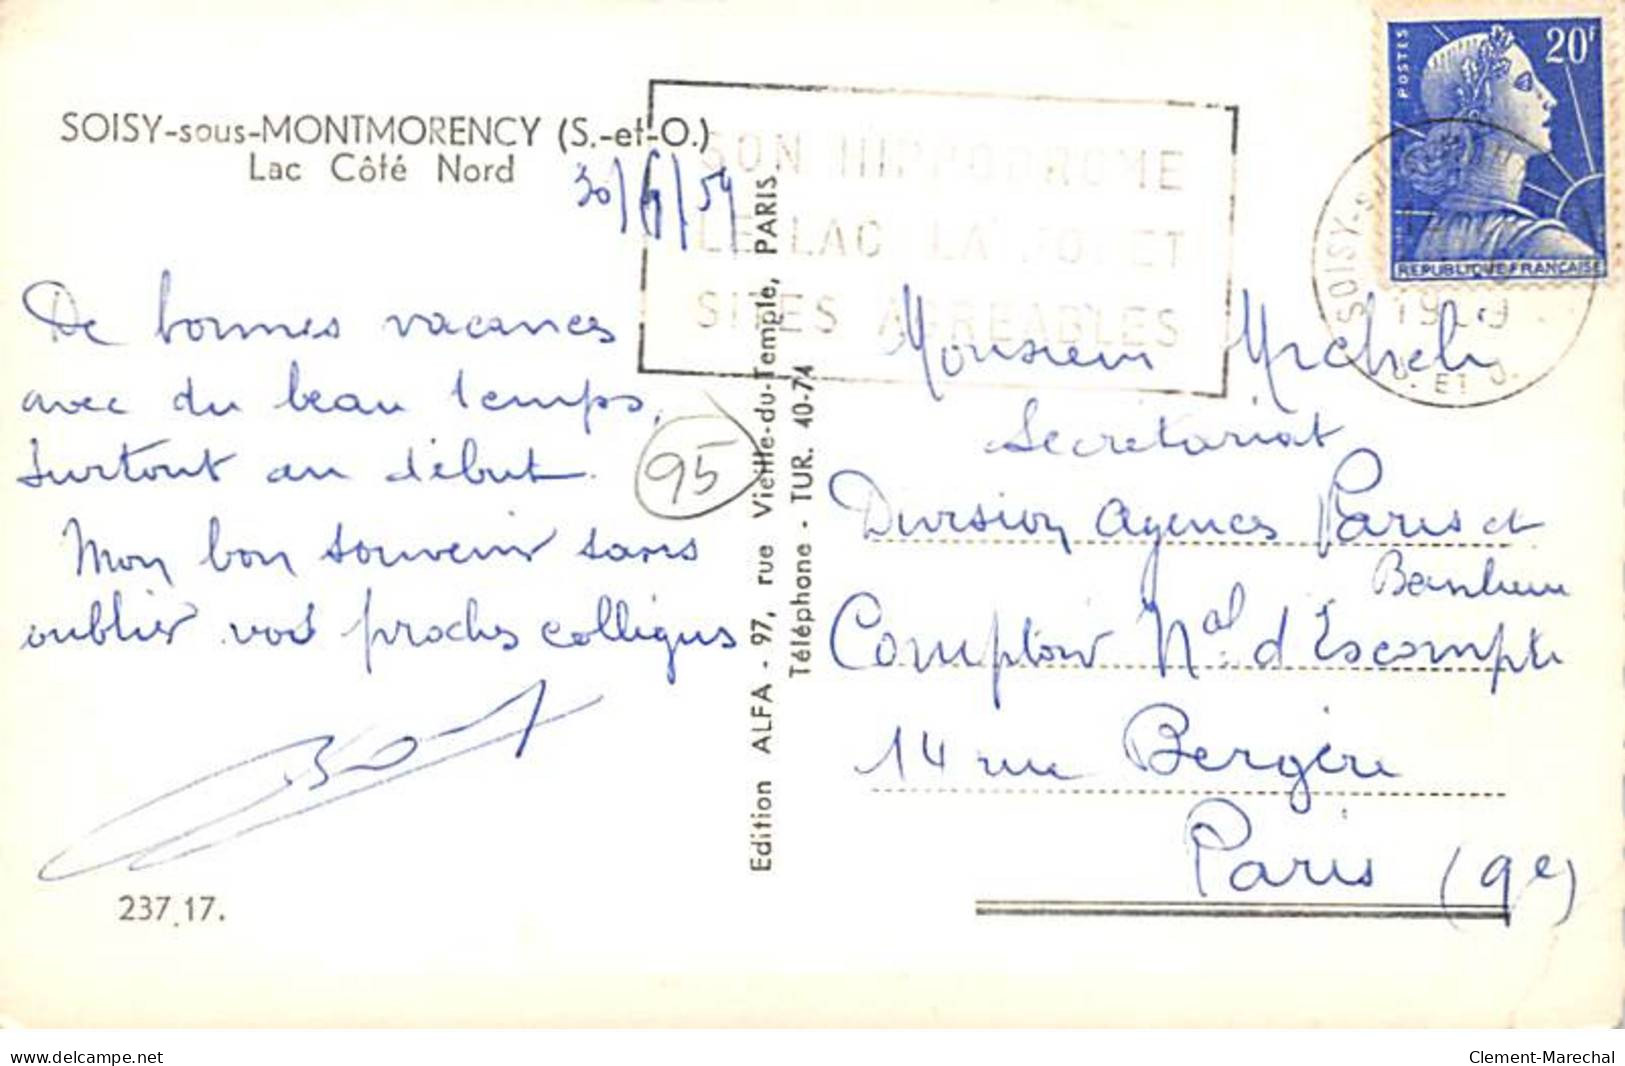 SOISY-sous-MONTMORENCY (S.-et-O.)
Lac Côté Nord
De bonnes vacances
avec du beau temps,
surtout au début.
Mon bon souvenir sans
oublier vos proches collègues
237.17.
95
Edition ALFA - 97, rue Vieille-du-Temple, PARIS.
Téléphone - TUR. 40-74
SON HIPPODROME
LE LAC LA FORET
SITES AGREABLES
POSTES
20F
REPUBLIQUE FRANCAISE
SOISY-S
ET
Monsieur Micheli
Secrétariat
Division Agences Paris et
Banlieue
Comptoir Nal d'Escompte
14 rue Bergère
Paris (9e)
www.delcampe.net
Clement-Marechal